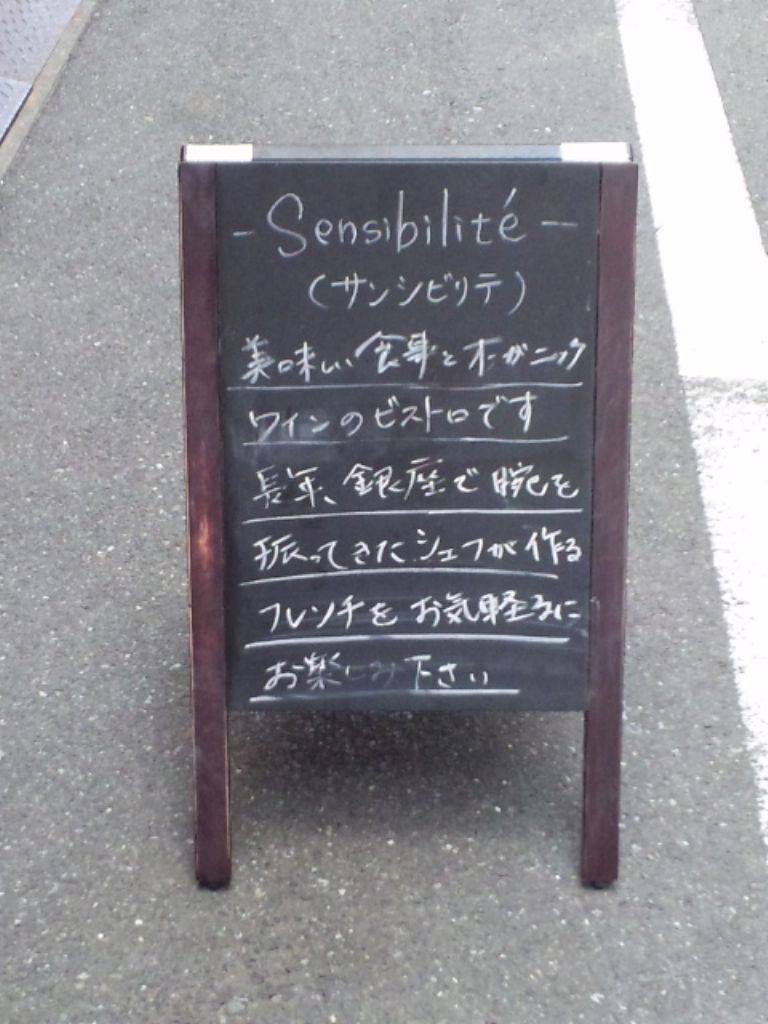 - Sensibilité -
(サンシビリテ)
美味しい食事とオーガニック
ワインのビストロです
長年、銀座で腕を
振ってきたシェフが作る
フレンチをお気軽るに
お楽しみ下さい